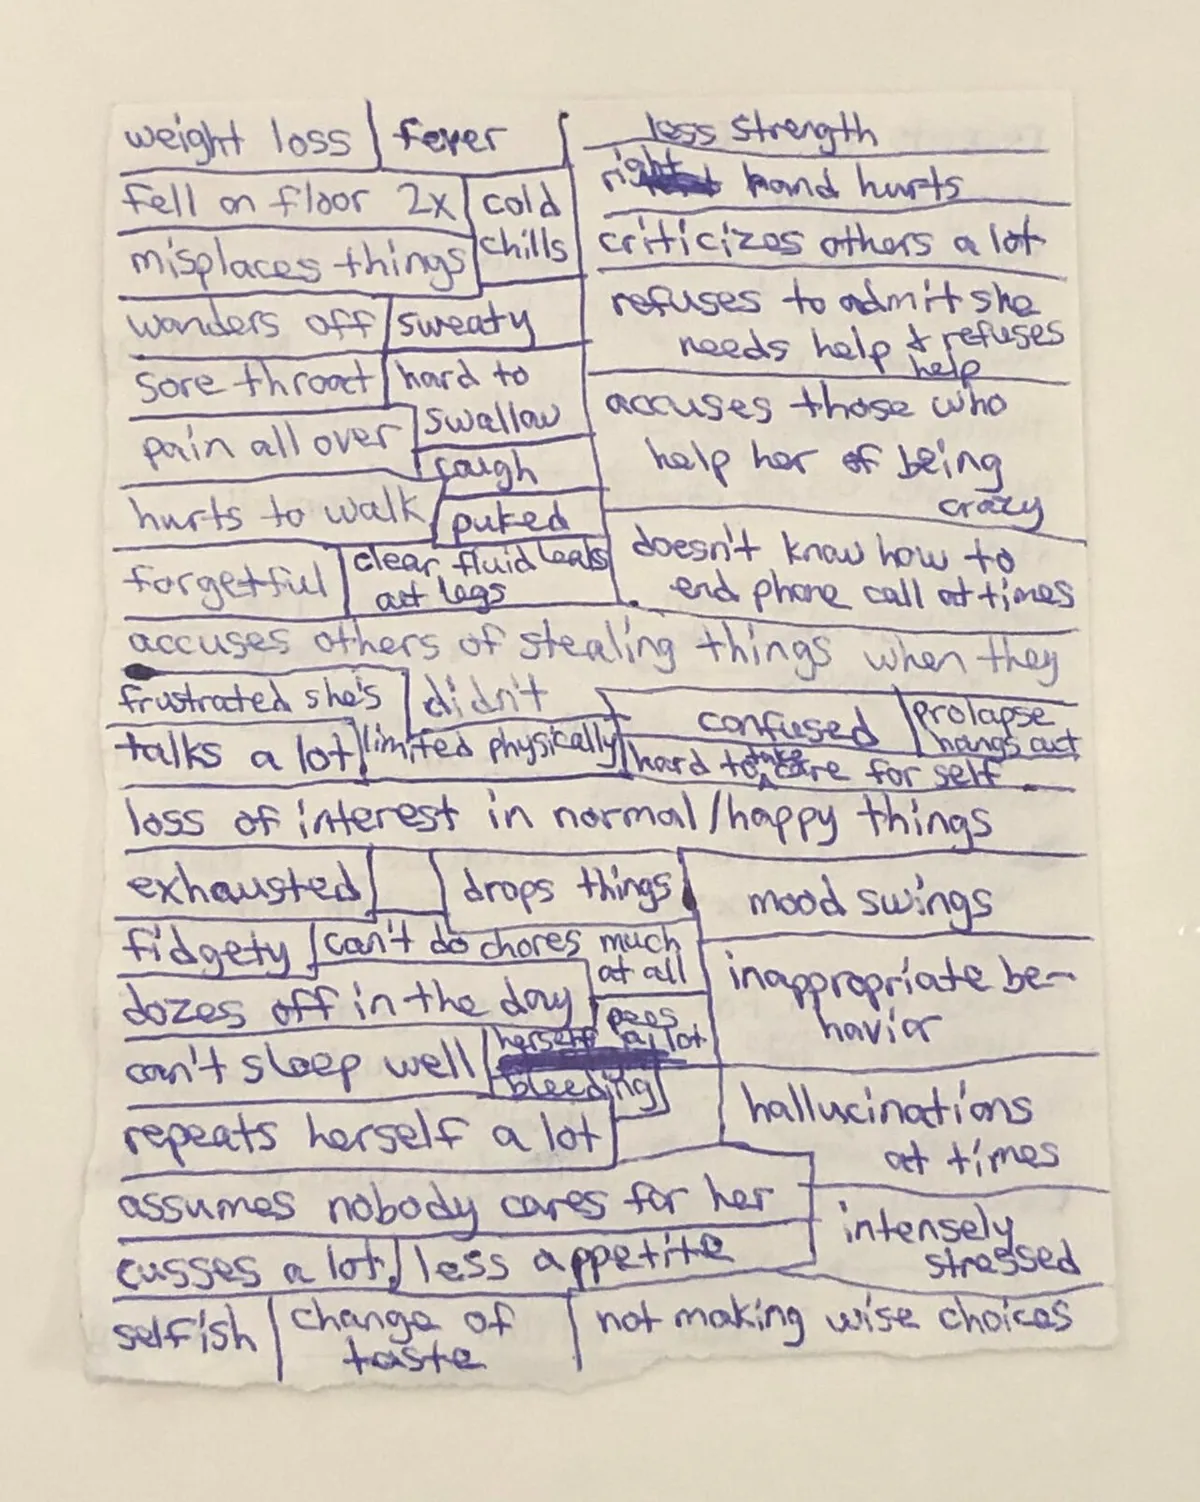 weight loss
fever
less strength
fell on floor 2x
cold
chills
right hand hurts
misplaces things
criticizes others a lot
wanders off
sweaty
refuses to admit she
needs help & refuses
help
sore throat
hard to
swallow
accuses those who
help her of being
crazy
pain all over
cough
hurts to walk
puked
doesn't know how to
end phone call at times
forgetful
clear fluid leaks
out legs
accuses others of stealing things when they
didn't
frustrated she's
limited physically
confused
prolapse
hangs out
talks a lot
hard to take care for self
loss of interest in normal/happy things
exhausted
drops things
mood swings
fidgety
can't do chores much
at all
inappropriate be-
havior
dozes off in the day
pees
herself a lot
can't sleep well
bleeding
hallucinations
at times
repeats herself a lot
assumes nobody cares for her
intensely
stressed
cusses a lot
less appetite
selfish
change of
taste
not making wise choices